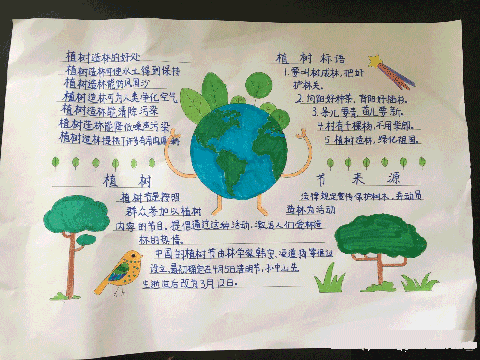 植树造林的好处
植树造林可使水土得到保持
植树造林能防风固沙
植树造林可为人类净化空气
植树造林能清除污染
植树造林能降低噪声污染
植树造林提供了许多有用的原料
植树标语
1.要叫树成林,把好
护林关。
2.向阳好种茶,背阳好插杉。
3.茶儿要亮,
4.村有千棵杨,不用柴郎。
5.植树造林,绿化祖国。
植树
节来源
植树节是按照
法律规定宣传保护树木,并动员
群众参加以植树
造林为活动
内容的节日,提倡通过这种活动,激发人们爱林造
林的热情。
中国的植树节由林学家韩安、凌道扬等倡议
设立,最初确定在4月5日清明节,孙中山先
生逝世后改为3月12日。